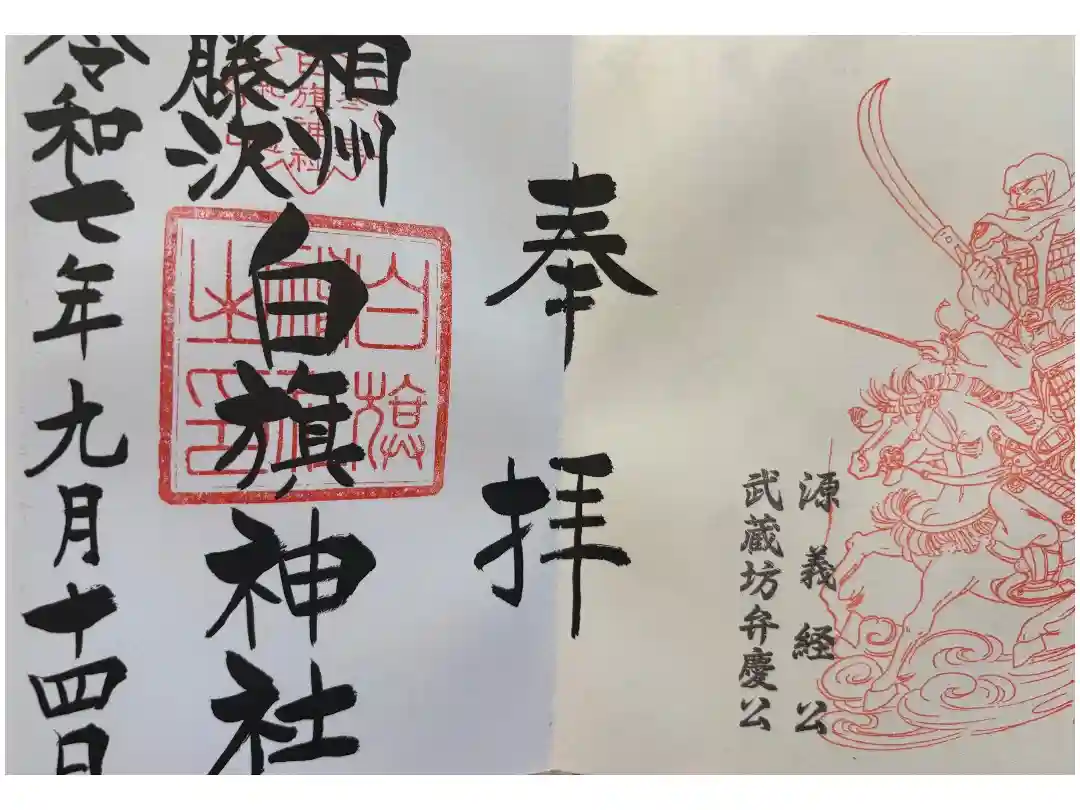 源義経公
武蔵坊弁慶公
奉拝
相州
藤沢
白旗神社
令和七年九月十四日